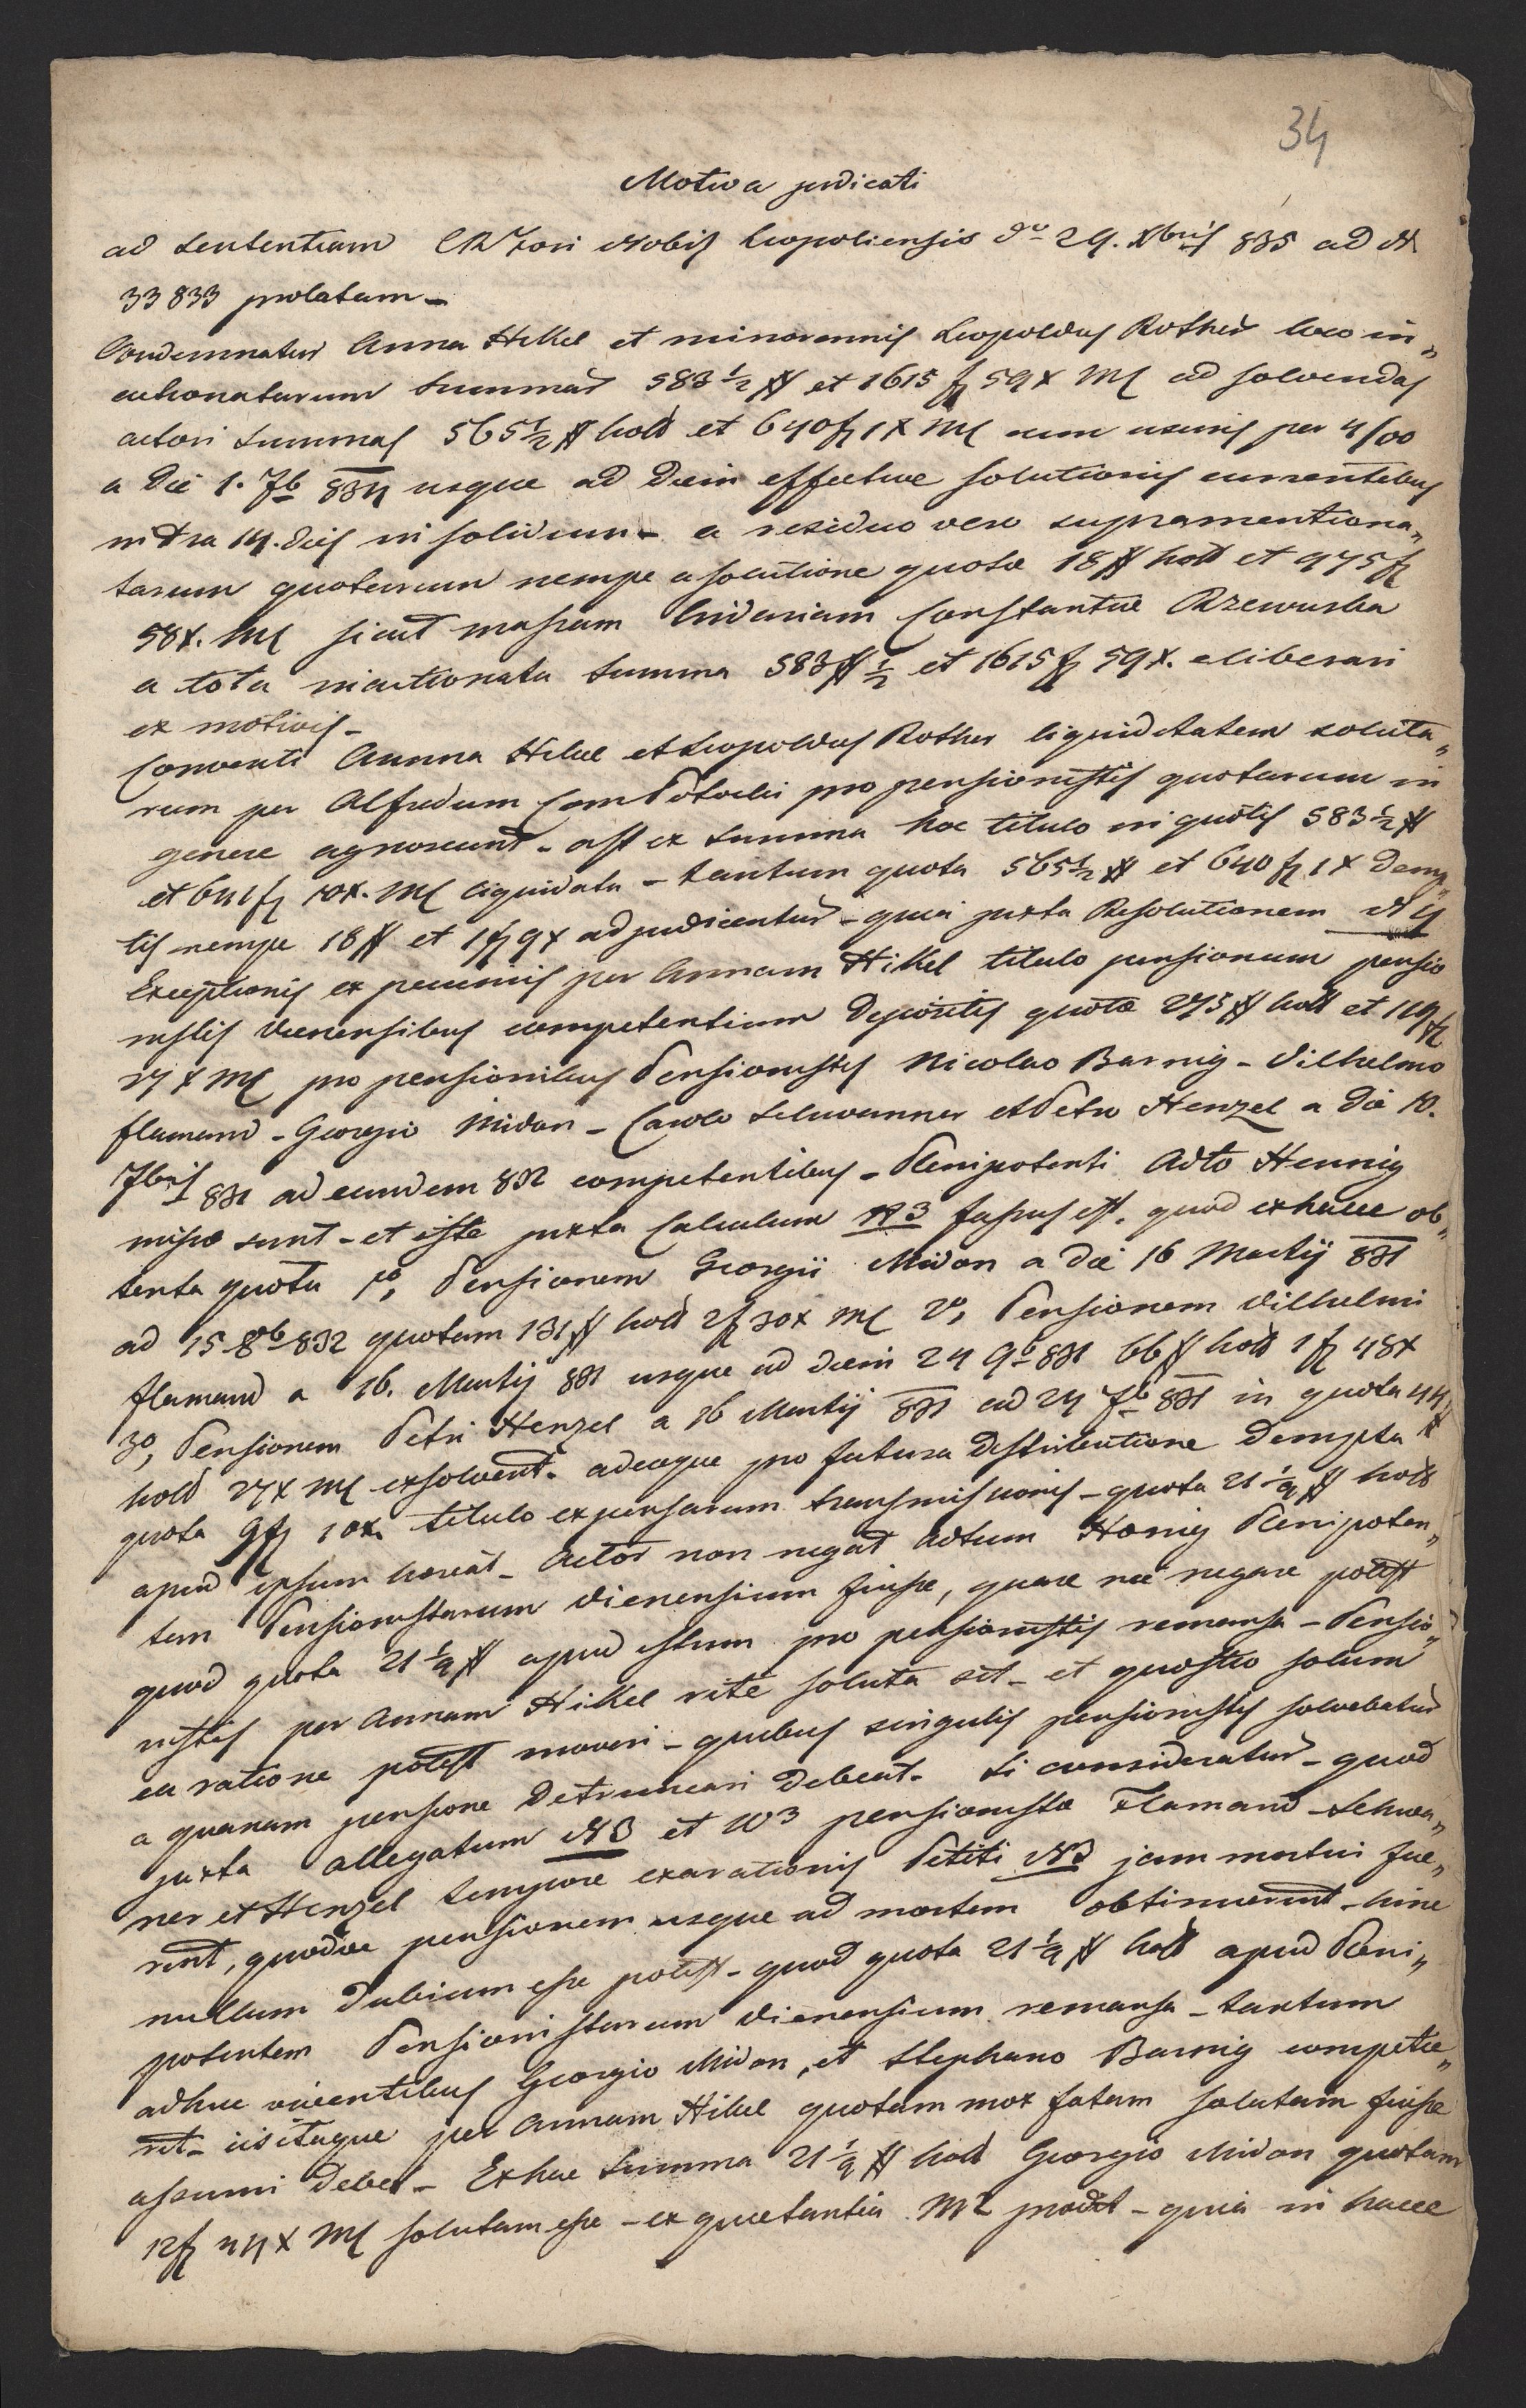 34
Motiva judicati
ad Sententiam CR Fori Nobil Leopoliensis do 29. Xbris 835 ad N
33833 prolatam -
Condemnatur Anna Hikel et minorennis Leopoldus Rother loco in„
actionatarum Summar 583 1/2 # et 1615 f 59 x MC ad solvendas
actori Summas 565 1/2 # holl et 640 f 1 x MC cum usuris per 4/00
a die 1. 7b 834 usque ad diem effectivae solutionis currentibus
intra 14. dies in solidum - a residuo vero supramentiona„
tarum quotarum nempe a solutione quotae 18 # holl et 975 f
58 x. MC sicut massam cridariam Constantiae Rzewuska
a tota inactionata Summa 583 # 1/2 et 1615 f 59 x. eliberari
ex motivis -
Conventi Anna Hikel et Leopoldus Rother liquiditatem soluta„
rum per Alfredum Com Potocki pro pensionistis quotarum in
genere agnoscunt - ast ex Summa hoc titulo in quotis 583 1/2 #
et 641 f 10 x. MC liquidata - tantum quota 565 1/2 # et 640 f 1 x demp„
tis nempe 18 # et 1 f 9 x adjudicentur - quia juxta Resolutionem N 4
Exceptionis ex pecuniis per Annam Hikel titulo pensionum pensio
nistis viennensibus competentium depositis quotae 275 # holl et 119 f
27 x MC pro pensionibus Pensionistis Nicolao Barnig - Vilhelmo
flamand - Georgio Midon - Carolo Schwanner et Petro Henzel a die 10.
7bris 831 ad eundem 832 competentibus - Plenipotenti Adto Hennig
missae sunt - et iste juxta Calculum N 3 fassus est, quod ex hacce ob„
tenta quota 1o, Pensionem Georgii Midon a die 16 Martij 831
ad 15 8b 832 quotam 131 # holl 2 f 30 x MC 2o, Pensionem Vilhelmi
flamand a 16. Martij 831 usque ad diem 24 9b 831 66 # holl 1 f 48 x
3o, Pensionem Petri Henzel a 16 Martij 831 ad 24 7b 831 in quota 44 #
holl 27 x MC exsolverit. adeoque pro futura distributione dempta
quota 9 f 10 x. titulo expensarum transmissionis - quota 21 1/9 # holl
apud ipsum haereat - Actor non negat Adtum Hoenig Plenipoten„
tem Pensionistarum viennensium fuisse, quare nec negare potest
quod quota 21 1/9 # apud istum pro pensionistis remansa - Pensio„
nistis per Annam Hikel rite soluta sit - et quaestio solum
ea ratione potest moveri - quibus singulis pensionistis solvebatur
a quanam pensione detruncari debeat. Si consideratur - quod
juxta allegatum N 3 et 103 pensionistae Flamand - Schwa„
ner et Henzel tempore exarationis Petiti N 3 jam mortui fue„
rint, quodve pensionem usque ad mortem obtinuerint - hinc
nullum dubium esse potest - quod quota 21 1/9 # holl apud Pleni„
potentem Pensionistarum viennensium remansa - tantum
adhuc viventibus Georgio Midon, et Stephano Barnig competie„
rit - iisitaque per Annam Hikel quotam mox fatam solutam fuisse
assumi debet - Ex hac Summa 21 1/9 # holl Georgio Midon quotam
12 f 44 x MC solutam esse - ex quietantia M2 prodit - quia in hacce